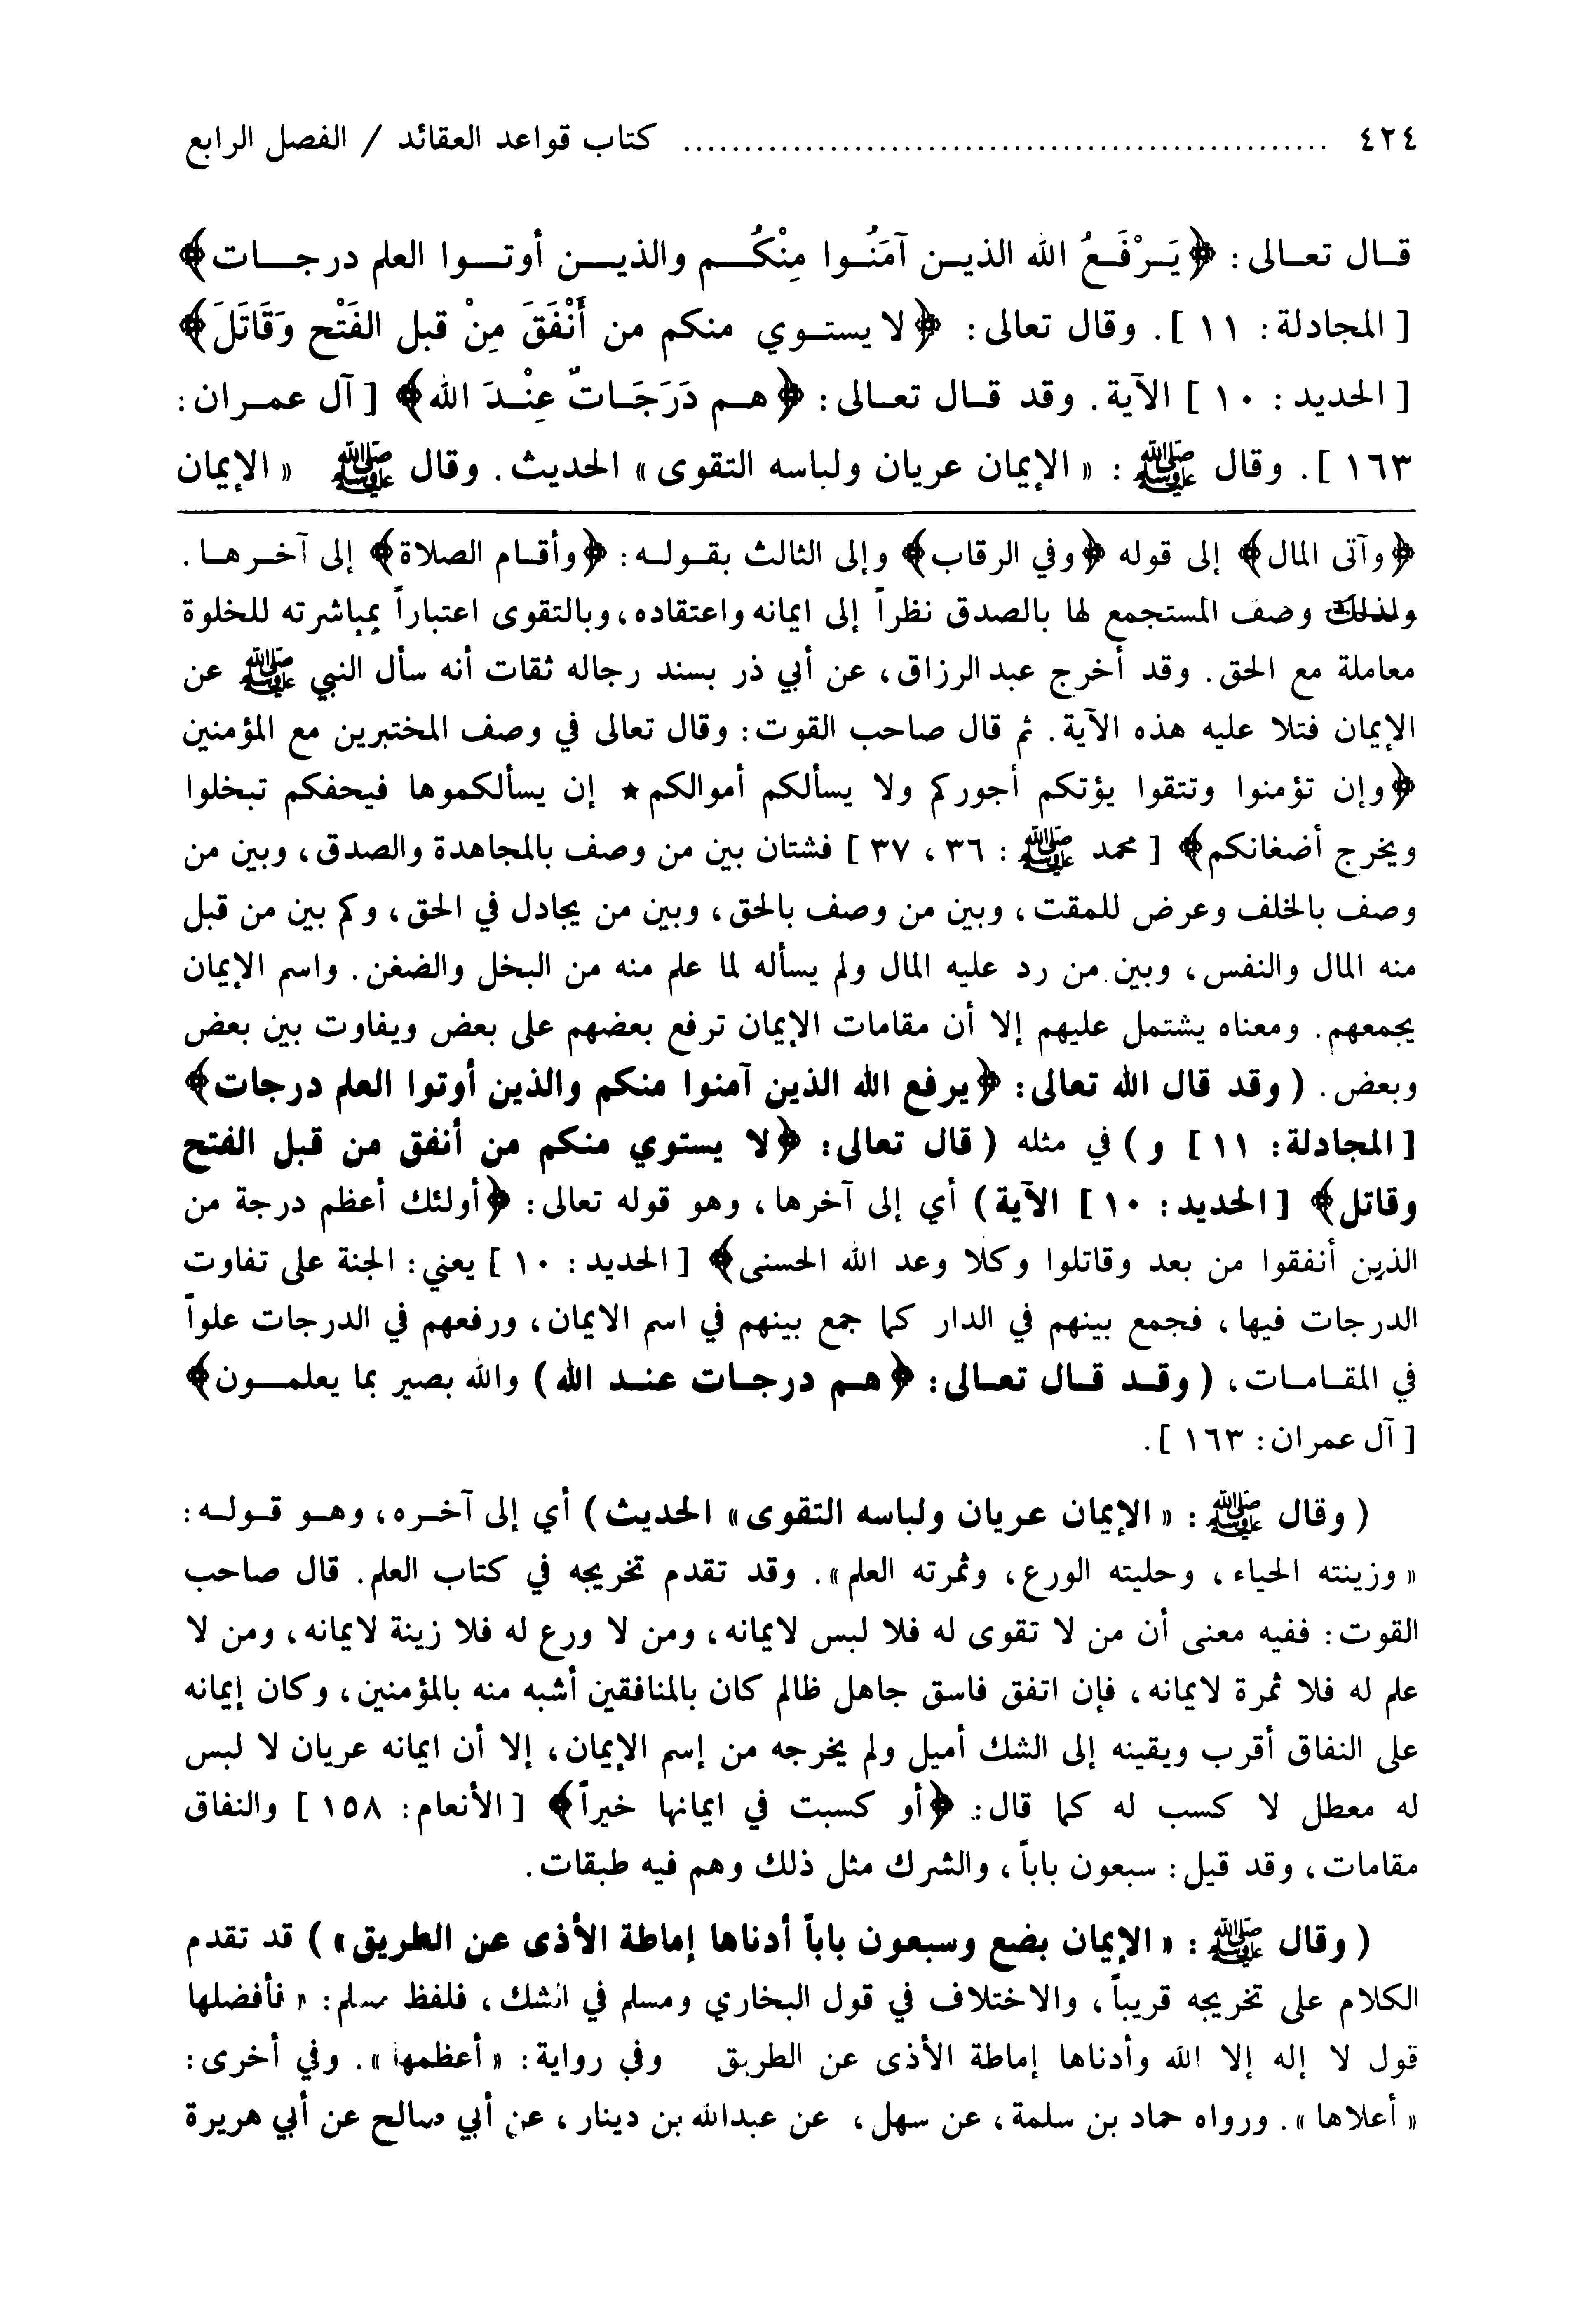 ٤٢٤ ..................................................... كتاب قواعد العقائد / الفصل الرابع
قـال تعـالى: ﴿يَـرْفَـعُ الله الذيـن آمَنُـوا مِنْكُـم والذيـن أوتـوا العلم درجـات﴾
[ المجادلة: ١١ ]. وقال تعالى: ﴿لا يستـوي منكم من أَنْفَقَ مِنْ قبل الفَتْح وَقَاتَلَ﴾
[ الحديد: ١٠ ] الآية. وقد قـال تعـالى: ﴿هـم دَرَجَـاتٌ عِنْـدَ الله﴾ [ آل عمـران:
١٦٣ ]. وقال ﷺ: « الإيمان عريان ولباسه التقوى » الحديث. وقال ﷺ « الإيمان
﴿وآتى المال﴾ إلى قوله ﴿وفي الرقاب﴾ وإلى الثالث بقـولـه: ﴿وأقـام الصلاة﴾ إلى آخـرهـا.
ولذلك وصف المستجمع لها بالصدق نظراً إلى ايمانه واعتقاده، وبالتقوى اعتباراً بمباشرته للخلوة
معاملة مع الحق. وقد أخرج عبد الرزاق، عن أبي ذر بسند رجاله ثقات أنه سأل النبي ﷺ عن
الإيمان فتلا عليه هذه الآية. ثم قال صاحب القوت: وقال تعالى في وصف المختبرين مع المؤمنين
﴿وإن تؤمنوا وتتقوا يؤتكم أجوركم ولا يسألكم أموالكم ★ إن يسألكموها فيحفكم تبخلوا
ويخرج أضغانكم﴾ [ محمد ﷺ: ٣٦ ، ٣٧ ] فشتان بين من وصف بالمجاهدة والصدق، وبين من
وصف بالخلف وعرض للمقت، وبين من وصف بالحق، وبين من يجادل في الحق، وكم بين من قبل
منه المال والنفس، وبين من رد عليه المال ولم يسأله لما علم منه من البخل والضغن. واسم الإيمان
يجمعهم. ومعناه يشتمل عليهم إلا أن مقامات الإيمان ترفع بعضهم على بعض ويفاوت بين بعض
وبعض. ( وقد قال الله تعالى: ﴿يرفع الله الذين آمنوا منكم والذين أوتوا العلم درجات﴾
[ المجادلة: ١١ ] و ) في مثله ( قال تعالى: ﴿لا يستوي منكم من أنفق من قبل الفتح
وقاتل﴾ [ الحديد: ١٠ ] الآية ) أي إلى آخرها، وهو قوله تعالى: ﴿أولئك أعظم درجة من
الذين أنفقوا من بعد وقاتلوا وكلا وعد الله الحسنى﴾ [ الحديد: ١٠ ] يعني: الجنة على تفاوت
الدرجات فيها، فجمع بينهم في الدار كما جمع بينهم في اسم الايمان، ورفعهم في الدرجات علواً
في المقـامـات، ( وقـد قـال تعـالى: ﴿هـم درجـات عنـد الله ) والله بصير بما يعلمـون﴾
[ آل عمران: ١٦٣ ].
( وقال ﷺ: « الإيمان عريان ولباسه التقوى » الحديث ) أي إلى آخـره، وهـو قـولـه:
« وزينته الحياء، وحليته الورع، وثمرته العلم ». وقد تقدم تخريجه في كتاب العلم. قال صاحب
القوت: ففيه معنى أن من لا تقوى له فلا لبس لايمانه، ومن لا ورع له فلا زينة لايمانه، ومن لا
علم له فلا ثمرة لايمانه، فإن اتفق فاسق جاهل ظالم كان بالمنافقين أشبه منه بالمؤمنين، وكان إيمانه
على النفاق أقرب ويقينه إلى الشك أميل ولم يخرجه من إسم الإيمان، إلا أن ايمانه عريان لا لبس
له معطل لا كسب له كما قال: ﴿أو كسبت في ايمانها خيراً﴾ [ الأنعام: ١٥٨ ] والنفاق
مقامات، وقد قيل: سبعون باباً، والشرك مثل ذلك وهم فيه طبقات.
( وقال ﷺ: « الإيمان بضع وسبعون باباً أدناها إماطة الأذى عن الطريق » ) قد تقدم
الكلام على تخريجه قريباً، والاختلاف في قول البخاري ومسلم في الشك، فلفظ مسلم: « فأفضلها
قول لا إله إلا الله وأدناها إماطة الأذى عن الطريق وفي رواية: « أعظمها ». وفي أخرى:
« أعلاها ». ورواه حماد بن سلمة، عن سهل، عن عبدالله بن دينار، عن أبي صالح عن أبي هريرة